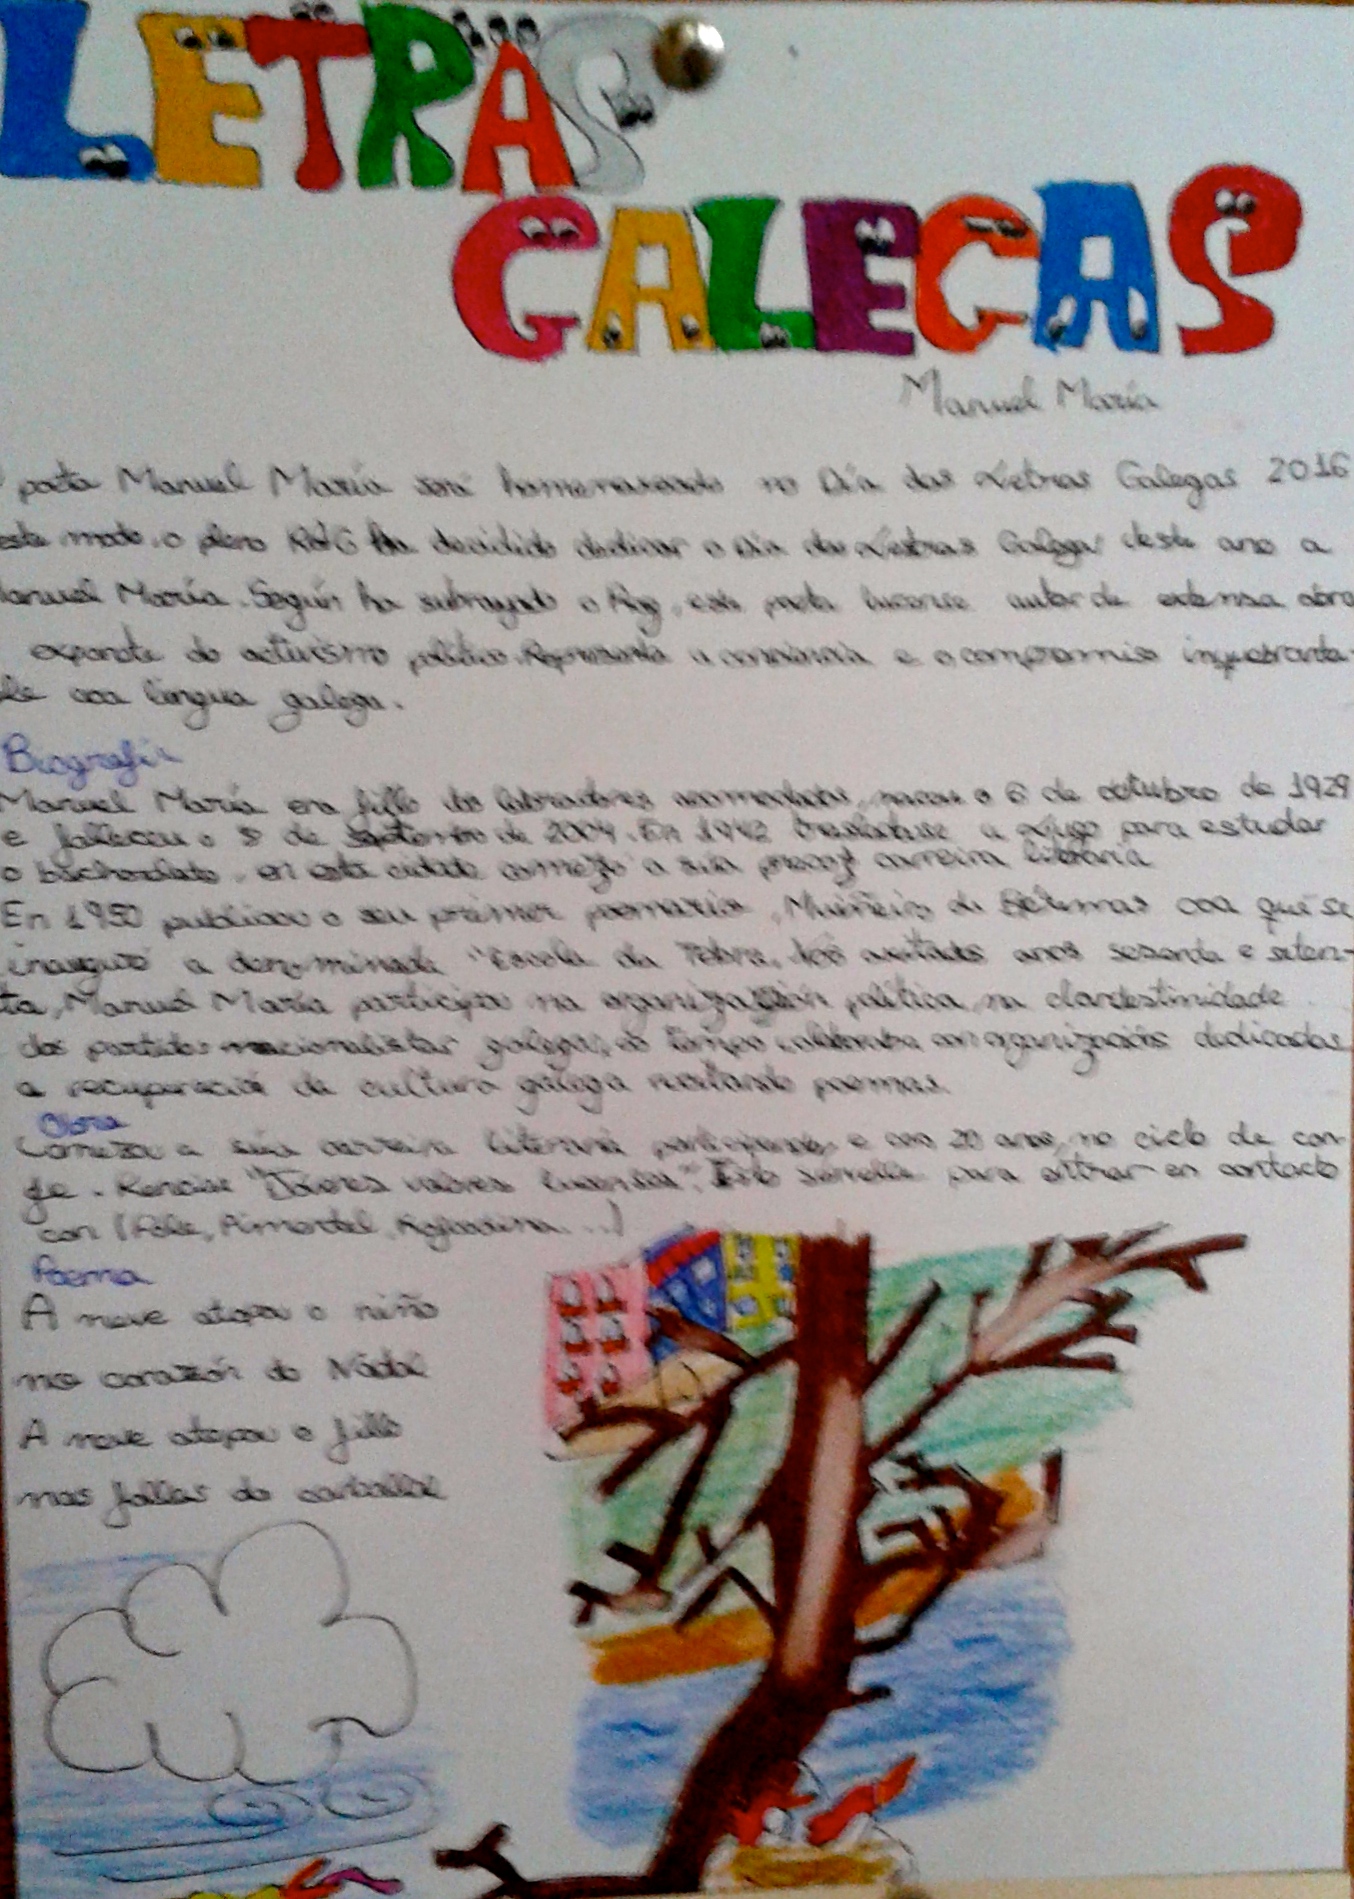 LETRAS
GALEGAS
Manuel María
poeta Manuel María será homenaxeado no Día das Letras Galegas 2016
este modo, o pleno RAG ha decidido dedicar o Día das Letras Galegas deste ano a
Manuel María. Según ha subrayado o Rag, este poeta lucense autor de extensa obra
expoñte do activismo político. Representa a conciencia e o compromiso inquebranta-
ble coa lingua galega.
Biografía
Manuel María era fillo de labradores acomodados, naceu o 6 de octubro de 1929
e falleceu o 8 de septembro de 2004. En 1942 trasladouse a Lugo para estudar
o bacherelato, en esta cidade comezo a súa precoz carreira literaria
En 1950 publicou o seu primer poemario, Muiñeiro de Brétemas coa que se
inauguró a denominada "Escola da Tebra. Nos anos sesenta e seten-
ta, Manuel María participou na organización política, na clandestinidade
dos partidos nacionalistas galegos, ao tempo colaboraba con organizaciós dedicadas
a recuperación da cultura galega recitando poemas.
Obra
Comezou a súa carreira literaria participando, e con 20 anos, no ciclo de con-
fe. Rencias "Jóvenes valores lucenses". Esto serviulle para entrar en contacto
con (Fole, Pimentel, Rof
Poema
A neve atopou o niño
no corazón do Nadal
A neve atopou o fillo
nas follas do carballal